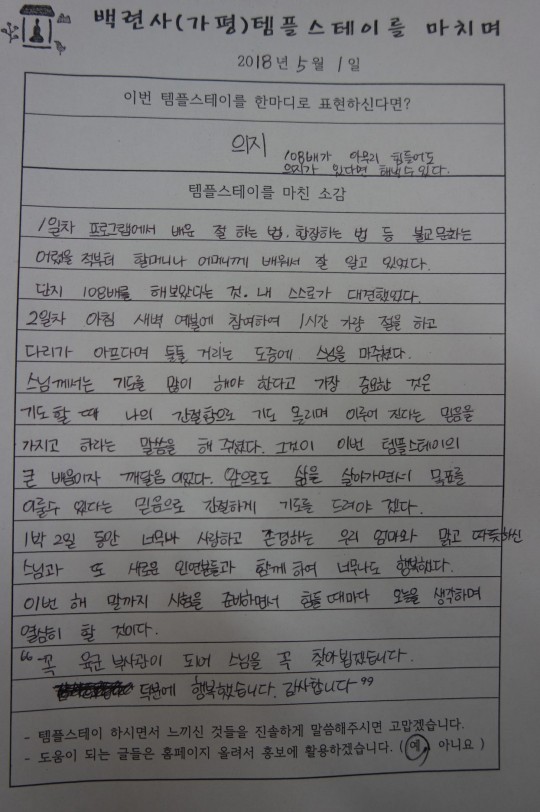 백련사(가평)템플스테이를 마치며
2018년 5월 1일
이번 템플스테이를 한마디로 표현하신다면?
의지 108배가 아무리 힘들어도
의지가 있다면 해낼수 있다.
템플스테이를 마친 소감
1일차 프로그램에서 배운 절 하는 법. 합장하는 법 등 불교문화는
어렸을 적부터 할머니나 어머니께 배워서 잘 알고 있었다.
단지 108배를 해보았다는 것. 내 스스로가 대견했었다.
2일차 아침 새벽 예불에 참여하여 1시간 가량 절을 하고
다리가 아프다며 툴툴 거리는 도중에 스님을 마주쳤다.
스님께서는 기도를 많이 해야 한다고 가장 중요한 것은
기도할 때 나의 간절함으로 기도 올리며 이루어 진다는 믿음을
가지고 하라는 말씀을 해 주셨다. 그것이 이번 템플스테이의
큰 배움이자 깨달음 이었다. 앞으로도 삶을 살아가면서 목표를
이룰수 있다는 믿음으로 간절하게 기도를 드려야 겠다.
1박 2일 동안 너무나 사랑하고 존경하는 우리 엄마와 맑고 따듯하신
스님과 또 새로운 인연분들과 함께 하여 너무나도 행복했다.
이번 해 말까지 시험을 준비하면서 힘들 때마다 오늘을 생각하며
열심히 할 것이다.
"꼭 육군 부사관이 되어 스님을 꼭 찾아뵙겠습니다.
덕분에 행복했습니다. 감사합니다"
- 템플스테이 하시면서 느끼신 것들을 진솔하게 말씀해주시면 고맙겠습니다.
- 도움이 되는 글들은 홈페이지 올려서 홍보에 활용하겠습니다. (예, 아니요 )